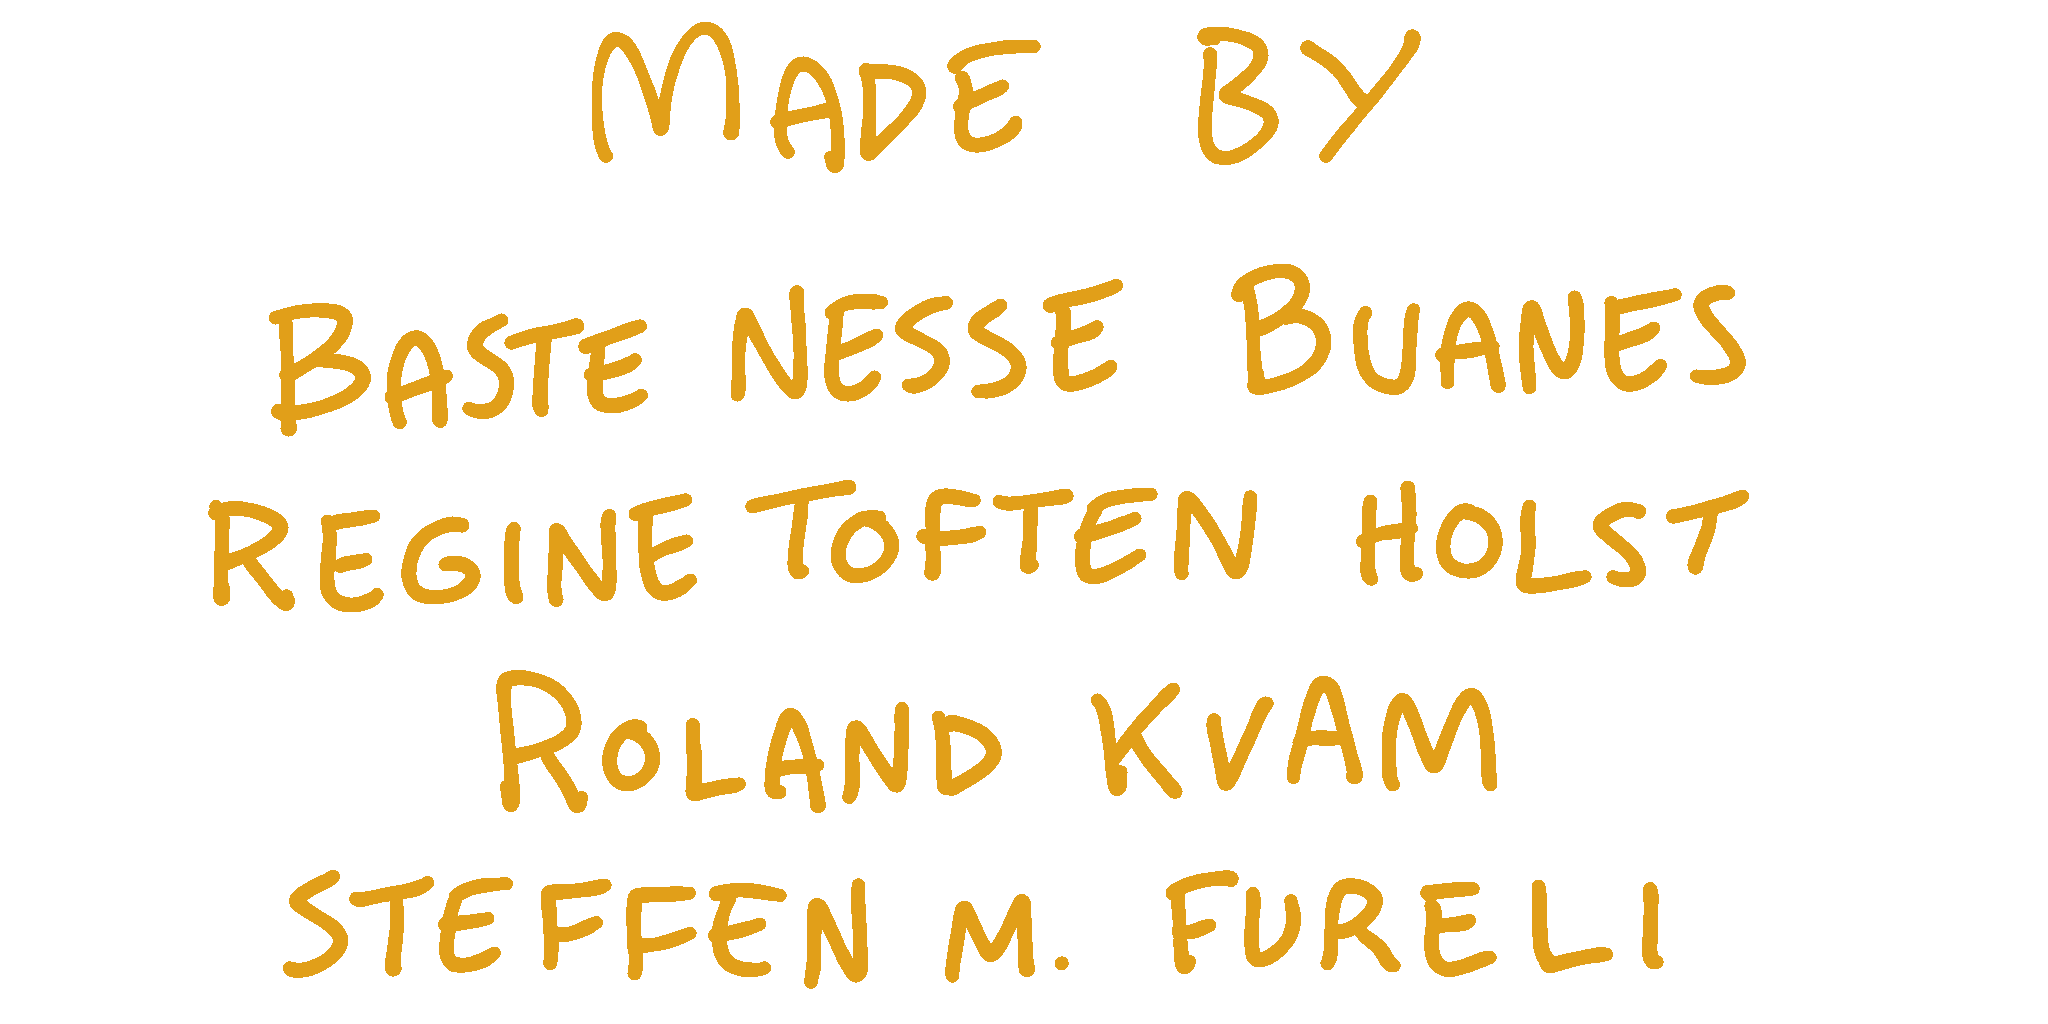 MADE BY
BASTE NESSE BUANES
REGINE TOFTEN HOLST
ROLAND KVAM
STEFFEN M. FURELI